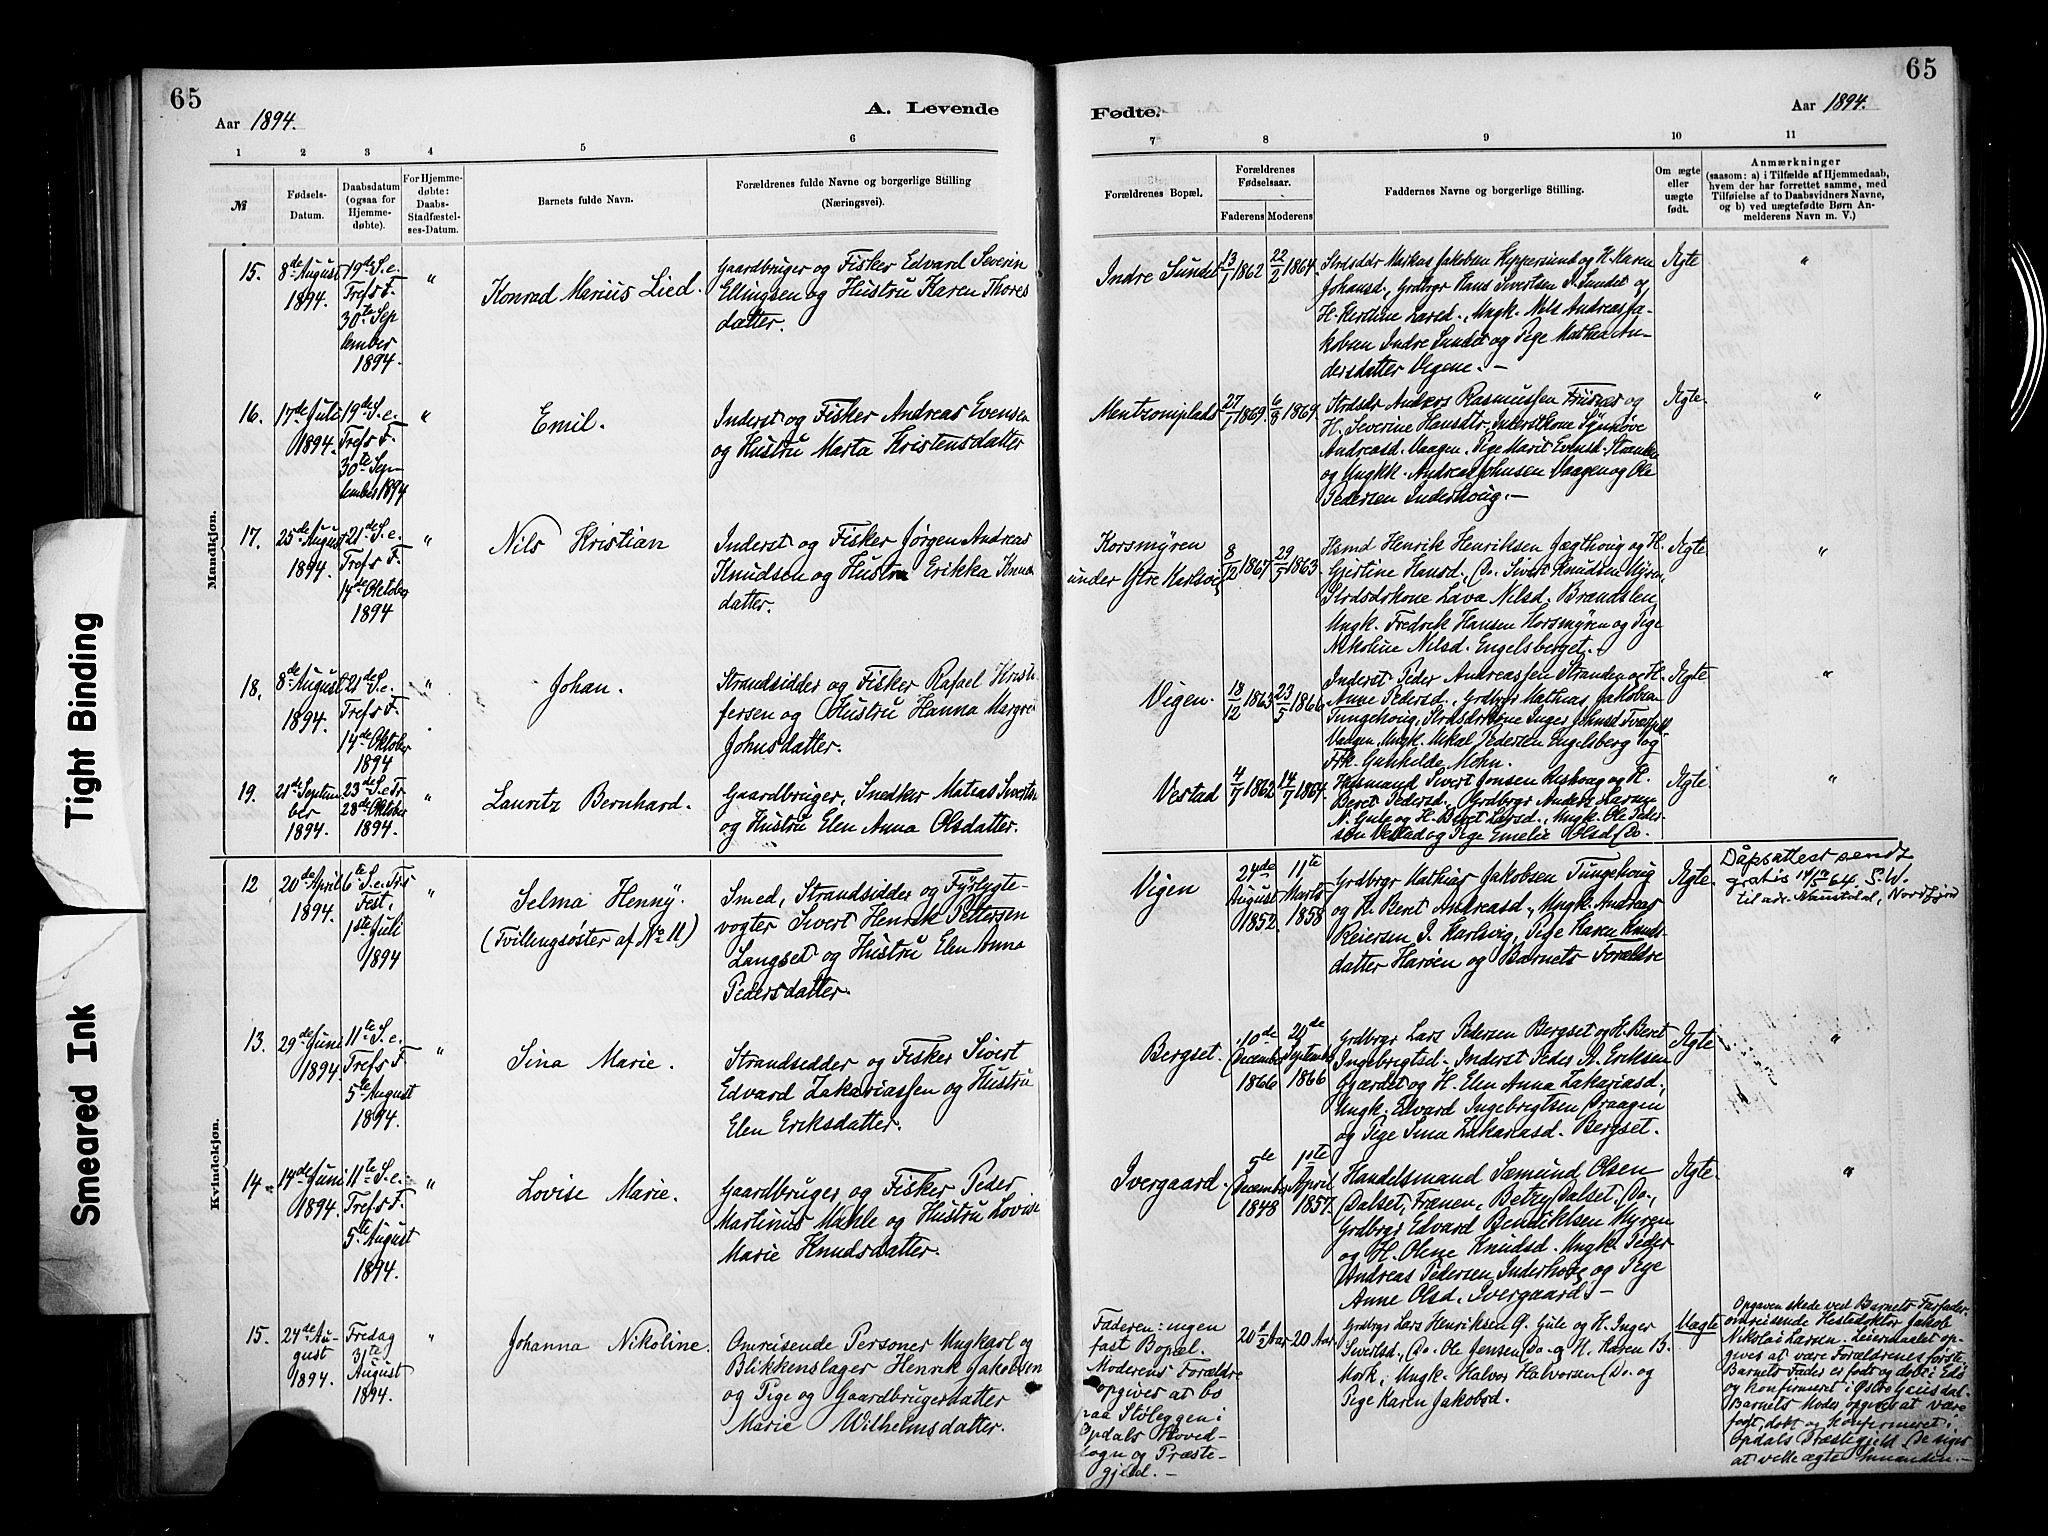 65
65
Aar 1894.
A. Levende
Fødte.
Aar 1894.
1 2 3 4 5 6
7 8 9 10 11
№
Fødsels-
Datum.
Daabsdatum
(ogsaa for
Hjemme-
døbte).
For Hjemme-
døbte:
Daabs-
Stadfæstel-
ses-Datum.
Barnets fulde Navn.
Forældrenes fulde Navne og borgerlige Stilling
(Næringsvei).
Forældrenes Bopæl.
Forældrenes
Fødselsaar.
Faderens Moderens
Faddernes Navne og borgerlige Stilling.
Om ægte
eller
uægte
født.
Anmærkninger
(saasom: a) i Tilfælde af Hjemmedaab,
hvem der har forrettet samme, med
Tilføielse af to Daabsvidners Navne,
og b) ved uægtefødte Børn An-
melderens Navn m. V.)
Mandkjøn.
15.
8de August
1894.
19de S. e.
Trefs F.
30te Sep
tember
1894.
"
Konrad Marius Lied.
Gaardbruger og Fisker Edvard Severin
Ellingsen og Hustru Karen Thores
datter.
Indre Sundet
13/1 1862
22/2 1864.
Strdsddr Markus Jakobsen Keppersund og H. Karen
Johansd., Grdbrgr Hans Sivertsen I. Sundet og
H. Kerstine Larsd., Ungk. Nils Andreas Ja-
kobsen Indre Sundet og Pige Mathea An-
dersdatter Vegene. -
Ægte
"
16.
17de Juli
1894.
19de S. e.
Trefs F.
30te Sep-
tember 1894
"
Emil.
Inderst og Fisker Andreas Evensen
og Hustru Marta Kristensdatter
Mentzoniplads
27/7 1869.
6/8 1869
Strdsdr Anders Rasmussen Friisnes og
H. Severine Hansdtr, Inderstkone Synnøve
Andreasd. Vaagen, Pige Marit Evensd. Stranden
og Ungkk. Andreas Johnsen Vaagen og Ole
Pedersen Inderhoug. -
Ægte.
"
17.
25de August
1894.
21de S. e.
Trefs F.
14de Oktober
1894
"
Nils Kristian
Inderst og Fisker Jørgen Andreas
Knudsen og Hustru Erikka Knuds
datter.
Korsmyren
under Ytre Karlsvig
8/12 1867
29/5 1863.
Hsmd Henrik Henriksen Jægthoug og H.
Gjertine Hansd., Do. Sivert Knudsen Myren,
Strdsdrkone Lava Nilsd. Brandslen,
Ungk. Fredrik Hansen Korsmyren og Pige
Nikoline Nilsd. Engelsberget. -
Ægte
"
18.
8de August
1894.
21de S. e.
Trefs F.
14de Oktober
1894
"
Johan.
Strandsidder og Fisker Rafael Krist-
fersen og Hustru Hanna Margre
Johnsdatter.
Vigen.
18/12 1863
23/5 1866
Inderst Peder Andreassen Stranden og H.
Anne Pedersd., Grdbrgr Mathias Jakobsen
Tungehoug, Strdsdrkone Inger Johnsd
Vaagen, Ungk. Mikal Pedersen Engelsberg og
Frk. Gunhilde Mohn.
Ægte
"
19.
21de Septem
ber
1894.
23de S. e Tr
28de Oktober
1894.
"
Lauritz Bernhard.
Gaardbruger, Snedker Matias Sivertsen
og Hustru Elen Anna Olsdatter.
Vestad
4/7 1862
14/7 1864.
Husmand Sivert Jonsen Reshoug og H.
Beret Pedersd., Grdbrgr Anders Larsen
N. Gule og H. Beret Larsd., Ungk. Ole Peder-
sen Vestad og Pige Emelie Olsd. Do.
Ægte
"
Kvindekjøn.
12
20de April
1894.
6te S. e. Trs
Fest,
1ste Juli
1894
"
Selma Henny.
(Tvillingsøster af No 11)
Smed, Strandsidder og Fyrlygte-
vogter Sivert Henrik Pettersen
Langset og Hustru Elen Anna
Pedersdatter.
Vigen
24de
August
1852.
11te
Marts
1858
Grdbrgr Mathias Jakobsen Tungehoug
og H. Beret Andreasd., Ungk. Andreas
Reiersen I. Karlsvig, Pige Karen Knuds
datter Harøen og Barnets Forældre
Ægte.
Dåpsattest sendt
gratis 14/5 64 S.W.
til adr. Naustdal, Nordfjord
13.
29de Juni
1894.
11te S. e.
Trefs F.
5te August
1894.
"
Sina Marie.
Strandsidder og Fisker Sivert
Edvard Zakariassen og Hustru
Elen Eriksdatter.
Bergset.
10de
December
1866
20de
September
1866
Grdbrgr Lars Pedersen Bergset og H. Beret
Ingebrigtsd. Inderst Peder A. Eriksen
Gjærdet og H. Elen Anna Zakariasd.,
Ungk. Edvard Ingebrigtsen Draagen
og Pige Sina Zakariasd. Bergset.
Ægte
"
14.
14de Juni
1894.
11te S. e.
Trefs F.
5te August
1894.
"
Lovise Marie.
Gaardbruger og Fisker Peder
Martinus Mahle og Hustru Lovise
Marie Knudsdatter.
Ivergaard.
5te
December
1848
10te
April
1857.
Handelsmand Sæmund Olsen
Dalset, Frænen, Betzy Dalset, Do.,
Grdbrgr Edvard Bendiktsen Myren
og H. Olene Knudsd. Ungk. Peder
Andreas Pedersen Inderhoug og Pige
Anne Olsd. Ivergaard. -
Ægte.
"
15.
24de Au-
gust
1894.
Fredag
31te
August
1894.
"
Johanna Nikoline.
Omreisende Personer Ungkarl og
Blikkenslager Henrik Jakobsen
og Pige og Gaardbrugerdatter
Marie Wilhelmsdatter.
Faderen: ingen
fast Bopæl.
Moderens Forældre
opgives at bo
paa Stöleggen i
Opdals Hoved-
sogn og Præste-
gjeld. -
20 1/2 Aar
20 Aar
Grdbrgr Lars Henriksen G. Gule og H. Inger
Sivertsd., Do. Ole Jensen Do. og H. Karen B.
Mork, Ungk. Halvor Halvorsen Do. og
Pige Karen Jakobsd.
Uægte
Opgaven skede ved Barnets Farfader
omreisende Hestedoktor Jakob
Nikolai Larsen. Leiermaalet op-
gives at være Forældrenes første.
Barnets Fader er født og døbt i Eds
og konfirmeret i Østre Gausdal.
Barnets Moder opgives at være
født, døbt og konfirmeret i
Opdals Præstegjeld. De siges
at ville ægte hinanden. -
Tight Binding
Smeared Ink